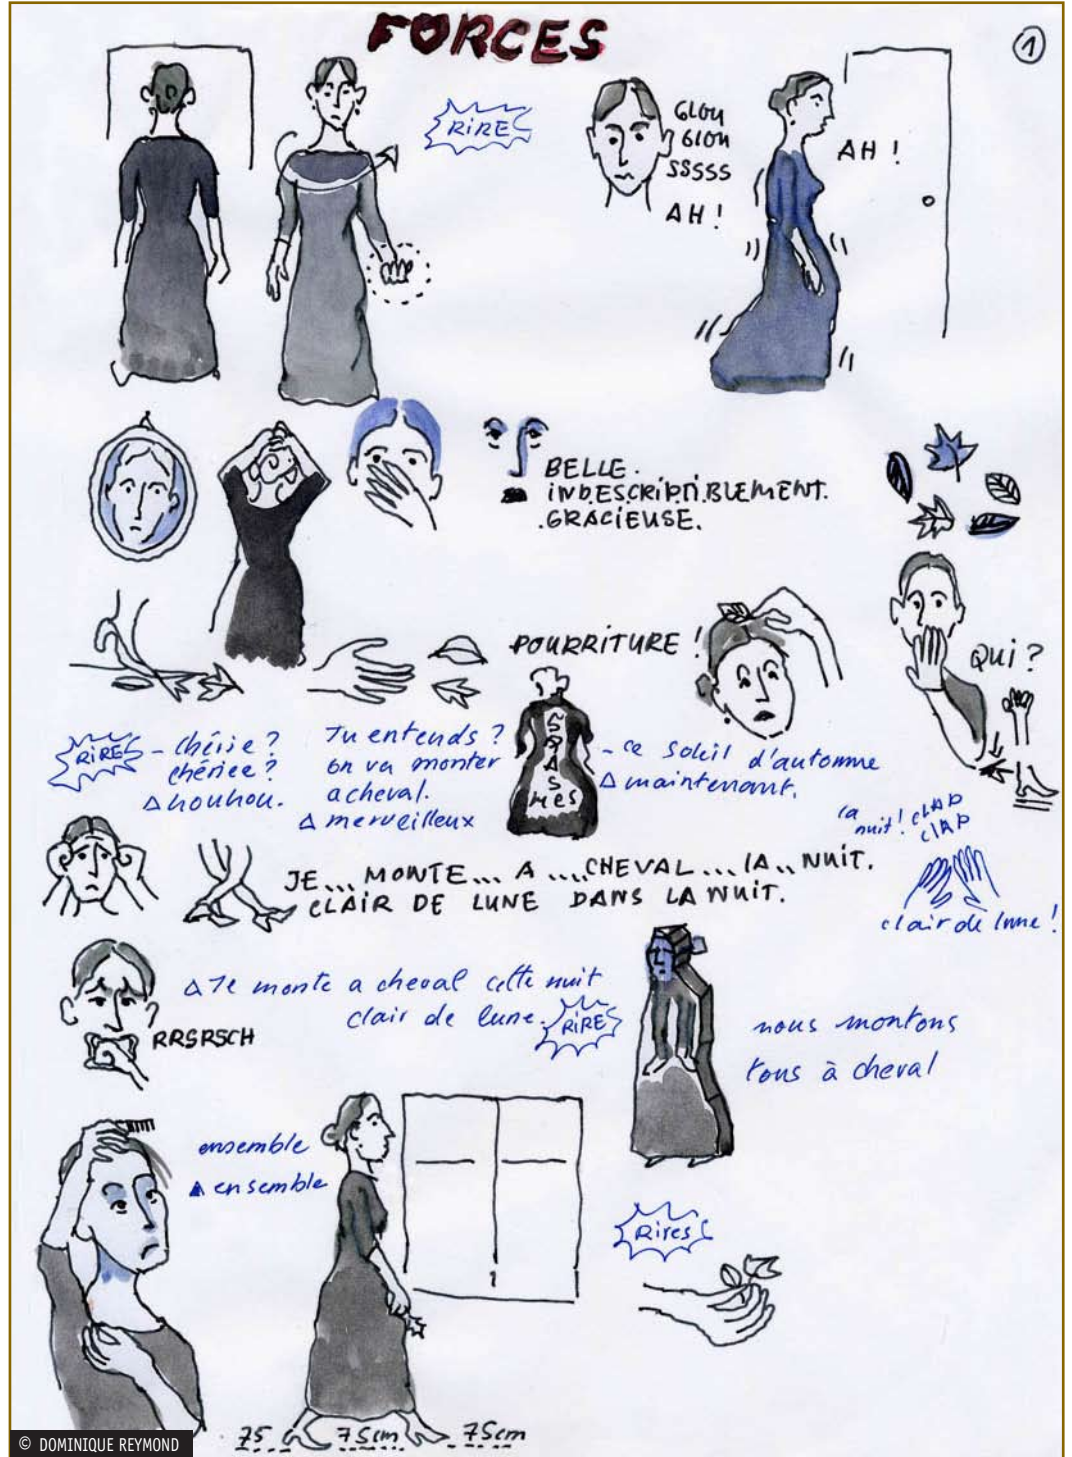 FORCES
1
RIRE
GLOU
GLOU
SSSSS
AH !
AH !
BELLE.
INDESCRIPTIBLEMENT.
.GRACIEUSE.
POURRITURE !
QUI ?
RIRES
- chérie ?
chériee ?
Δ houhou.
Tu entends ?
on va monter
a cheval.
Δ merveilleux
SPASMES
- ce soleil d'automne
Δ maintenant.
la nuit ! CLAP
CLAP
clair de lune !
JE... MONTE... A ....CHEVAL... LA.. NUIT.
CLAIR DE LUNE DANS LA NUIT.
Δ Je monte a cheval cette nuit
clair de lune.
RIRES
RRSRSCH
nous montons
tous à cheval
ensemble
Δ ensemble
Rires
75 75cm 75cm
© DOMINIQUE REYMOND